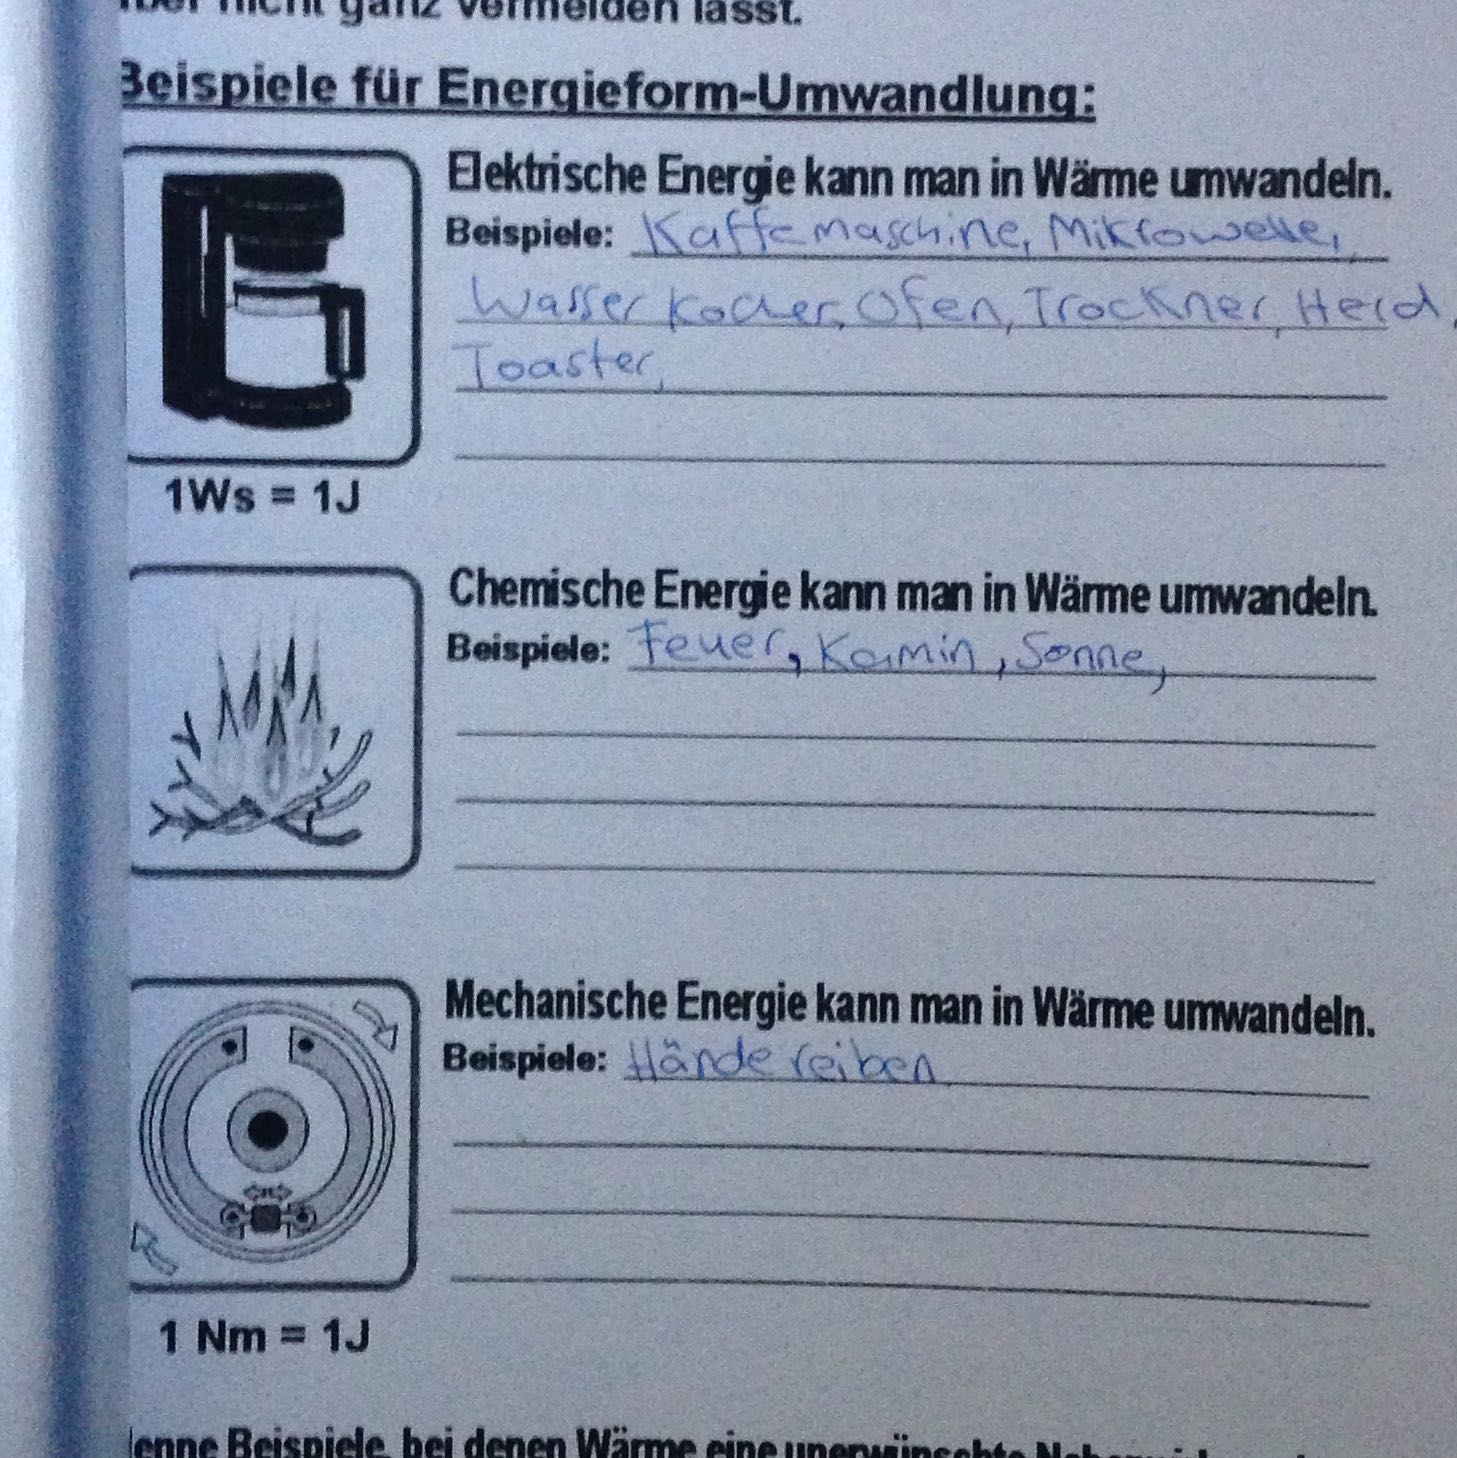 nicht ganz vermeiden lässt.
Beispiele für Energieform-Umwandlung:
Elektrische Energie kann man in Wärme umwandeln.
Beispiele: Kaffemaschine, Mikrowelle,
Wasserkocher, Ofen, Trockner, Herd,
Toaster,
1Ws = 1J
Chemische Energie kann man in Wärme umwandeln.
Beispiele: Feuer, Kamin, Sonne,
Mechanische Energie kann man in Wärme umwandeln.
Beispiele: Hände reiben
1 Nm = 1J
Beispiele, bei denen Wärme eine unerwünschte